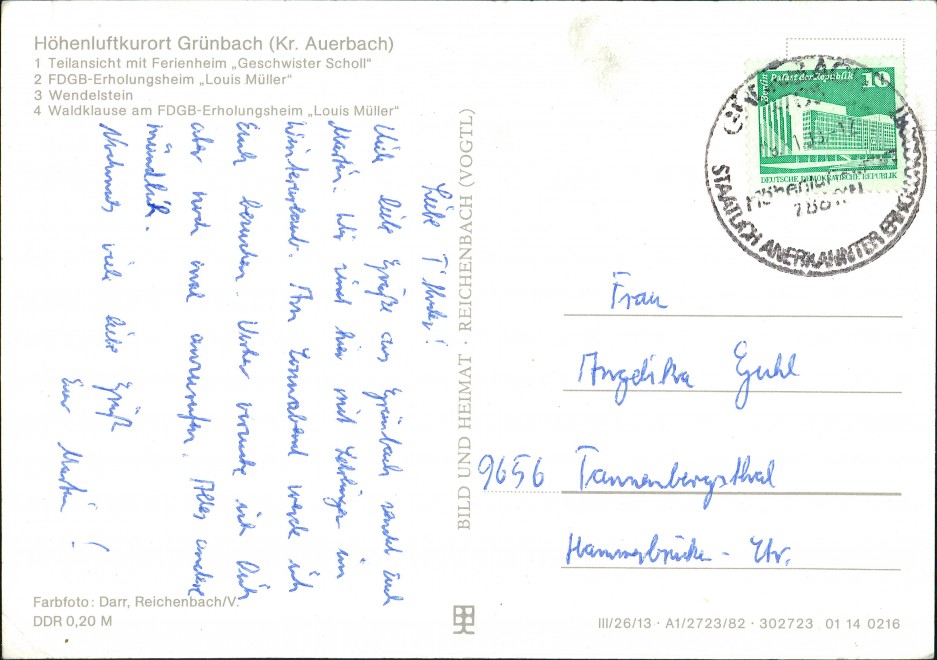 Höhenluftkurort Grünbach (Kr. Auerbach)
1 Teilansicht mit Ferienheim „Geschwister Scholl“
2 FDGB-Erholungsheim „Louis Müller“
3 Wendelstein
4 Waldklause am FDGB-Erholungsheim „Louis Müller“
Liebe
Viele liebe Grüße aus Grünbach sendet Euch
Martin. Wir sind hier mit Lehrlingen im
Winterurlaub. Am Sonnabend werde ich
Euch besuchen. Vorher versuche ich Dich
aber noch mal anzurufen. Alles andere
mündlich.
Nochmals viele liebe Grüße
Euer Martin!
Farbfoto: Darr, Reichenbach/V.
DDR 0,20 M
BILD UND HEIMAT · REICHENBACH (VOGTL)
Berlin Palast der Republik 10
DEUTSCHE DEMOKRATISCHE REPUBLIK
STAATLICH ANERKANNTER
Frau
Angelika Guhl
9656 Tannenbergsthal
Hammerbrücker-Str.
III/26/13 · A1/2723/82 · 302723 01 14 0216